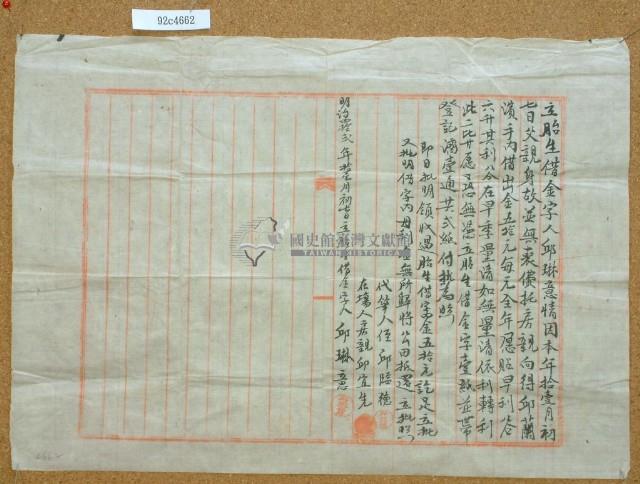 92c4662
立胎生借金字人邱琳意情因本年拾壹月初
七日父親身故並無喪費托房親向得邱蘭
濱手內借出金五拾元每元全年愿貼早利谷
六升其利谷在早季量清如無量清依利轉利
此二比甘愿恐無憑立胎生借金字壹紙並帶
登記濟壹通共弍紙付執為照
即日批明領收過胎生借字金五拾元訖足立批
又批明借字內母利無所歸將公田抵還立批照
代筆人侄邱臨德
在場人房親邱宜先
明治 年拾壹月初 日立胎生借金字人邱琳意
國史館臺灣文獻館
TAIWAN HISTORICA